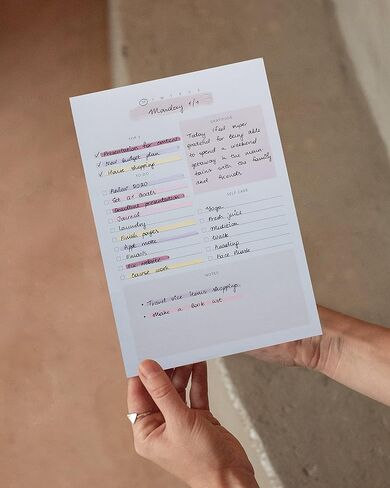 Monday 4/1
TOP 3
Presentation for content
New budget plan
House shopping
TO DO
Review 2020
Set Q1 Goals
Download presentation
Journal
Laundry
Finish papers
Appt. mom
Emails
Fix website
Course work
GRATITUDE
Today I feel super
grateful for being able
to spend a weekend
getaway in the moun
tains with the family
and friends
SELF CARE
Yoga
Fresh juice
Meditation
Walk
Reading
Face Mask
NOTES
• Travel size items shopping
• Make a book list